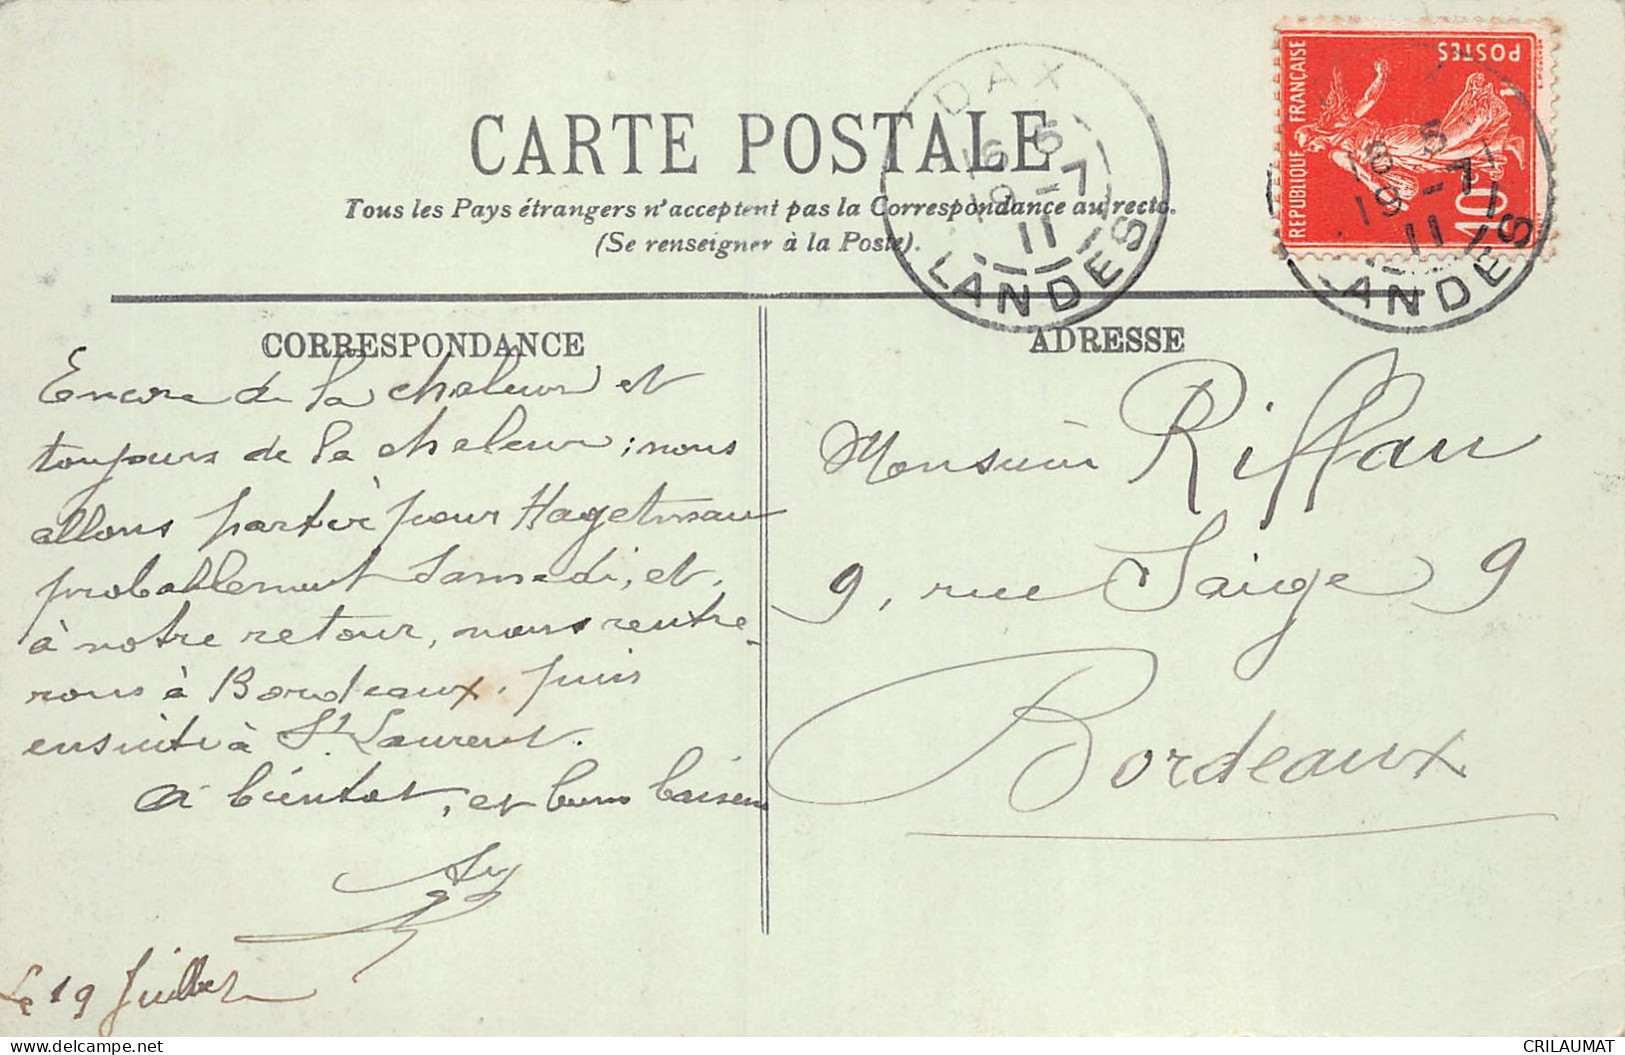 CARTE POSTALE
Tous les Pays étrangers n'acceptent pas la Correspondance au recto.
(Se renseigner à la Poste).
DAX
16 5
19 - 7
11
LANDES
REPUBLIQUE FRANÇAISE
POSTES
10c
16 5
19 - 7
11
LANDES
CORRESPONDANCE
Encore de la chaleur et
toujours de la chaleur ; nous
allons partir pour Hagetmau
probablement Samedi, et,
à notre retour, nous rentre-
rons à Bordeaux, puis
ensuite à St Laurent.
A bientot, et bons baisers
Le 19 Juillet
ADRESSE
Monsieur Riffau
9, rue Saige 9
Bordeaux
delcampe.net
CRILAUMAT